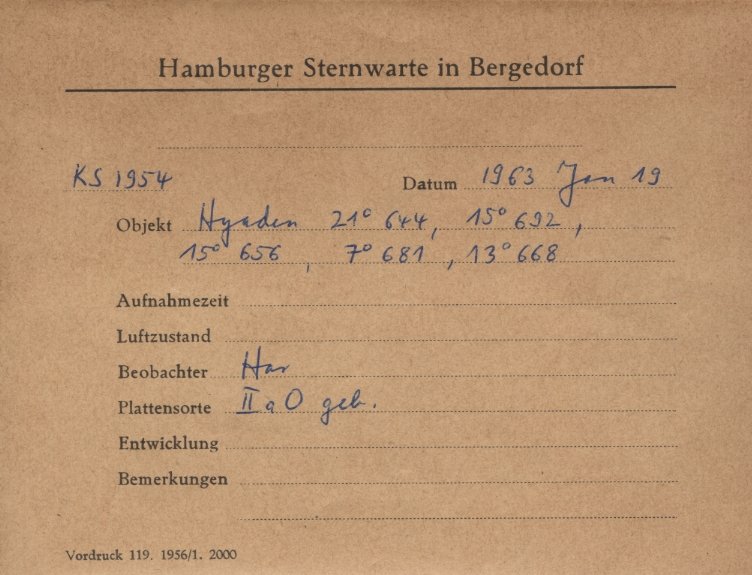 Hamburger Sternwarte in Bergedorf
KS 1954 Datum 1963 Jan 19
Objekt Hyaden 21° 644, 15° 692,
15° 656, 7° 681, 13° 668
Aufnahmezeit
Luftzustand
Beobachter Har
Plattensorte II a O geb.
Entwicklung
Bemerkungen
Vordruck 119. 1956/1. 2000